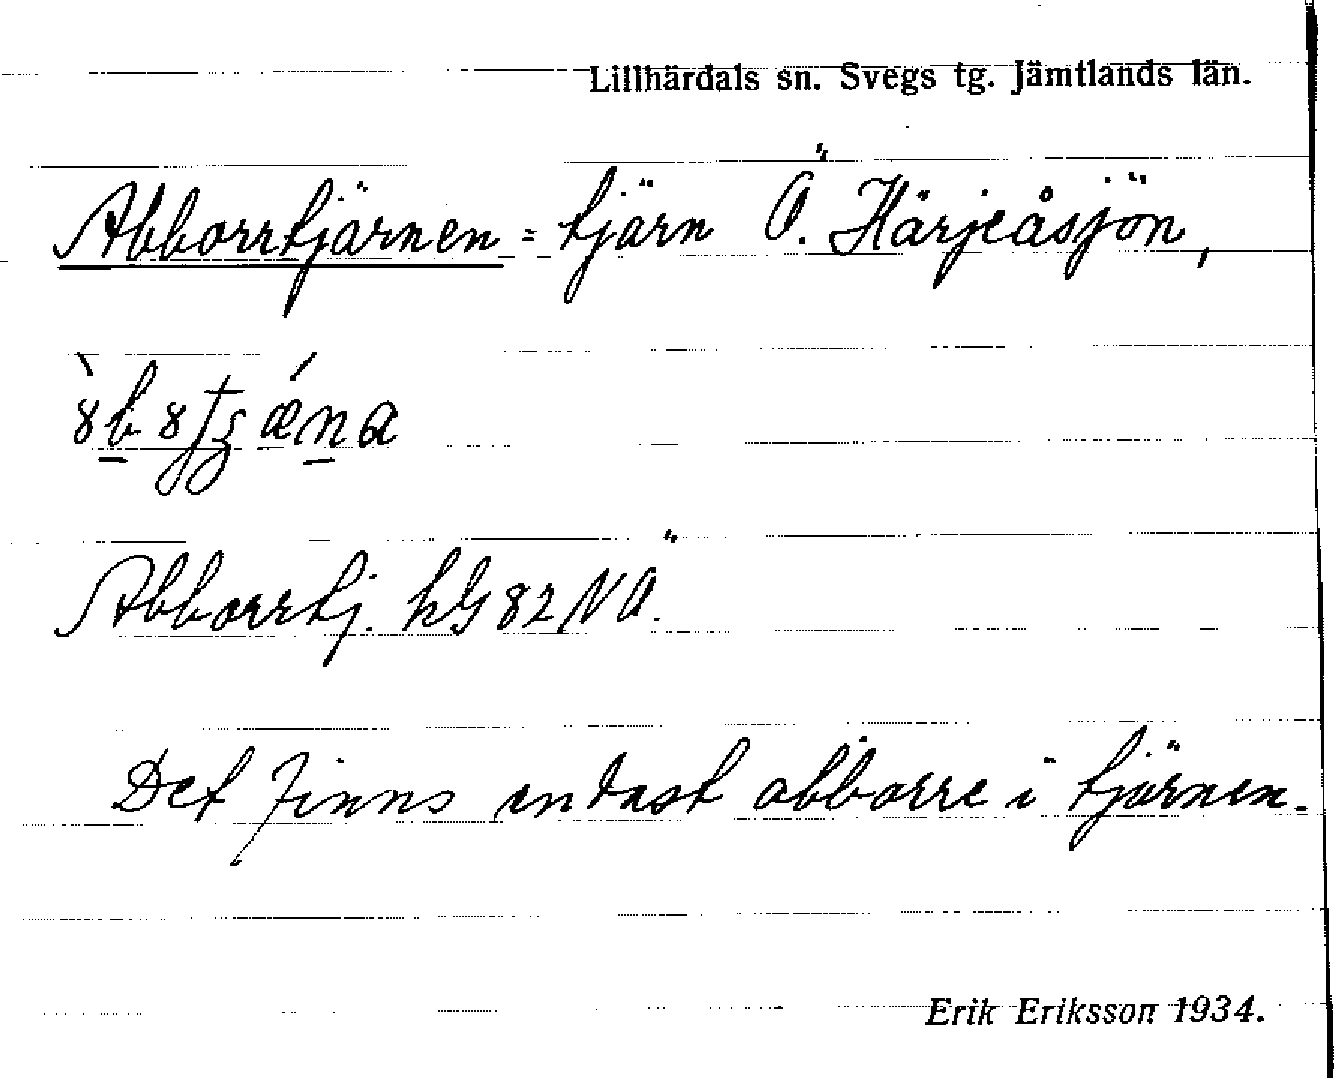 Lillhärdals sn. Svegs tg. Jämtlands län.
Abborrtjärnen = tjärn Ö. Härjeåsjön,
Abborrtj. hG 82 NÖ.
Det finns endast abborre i tjärnen.
Erik Eriksson 1934.